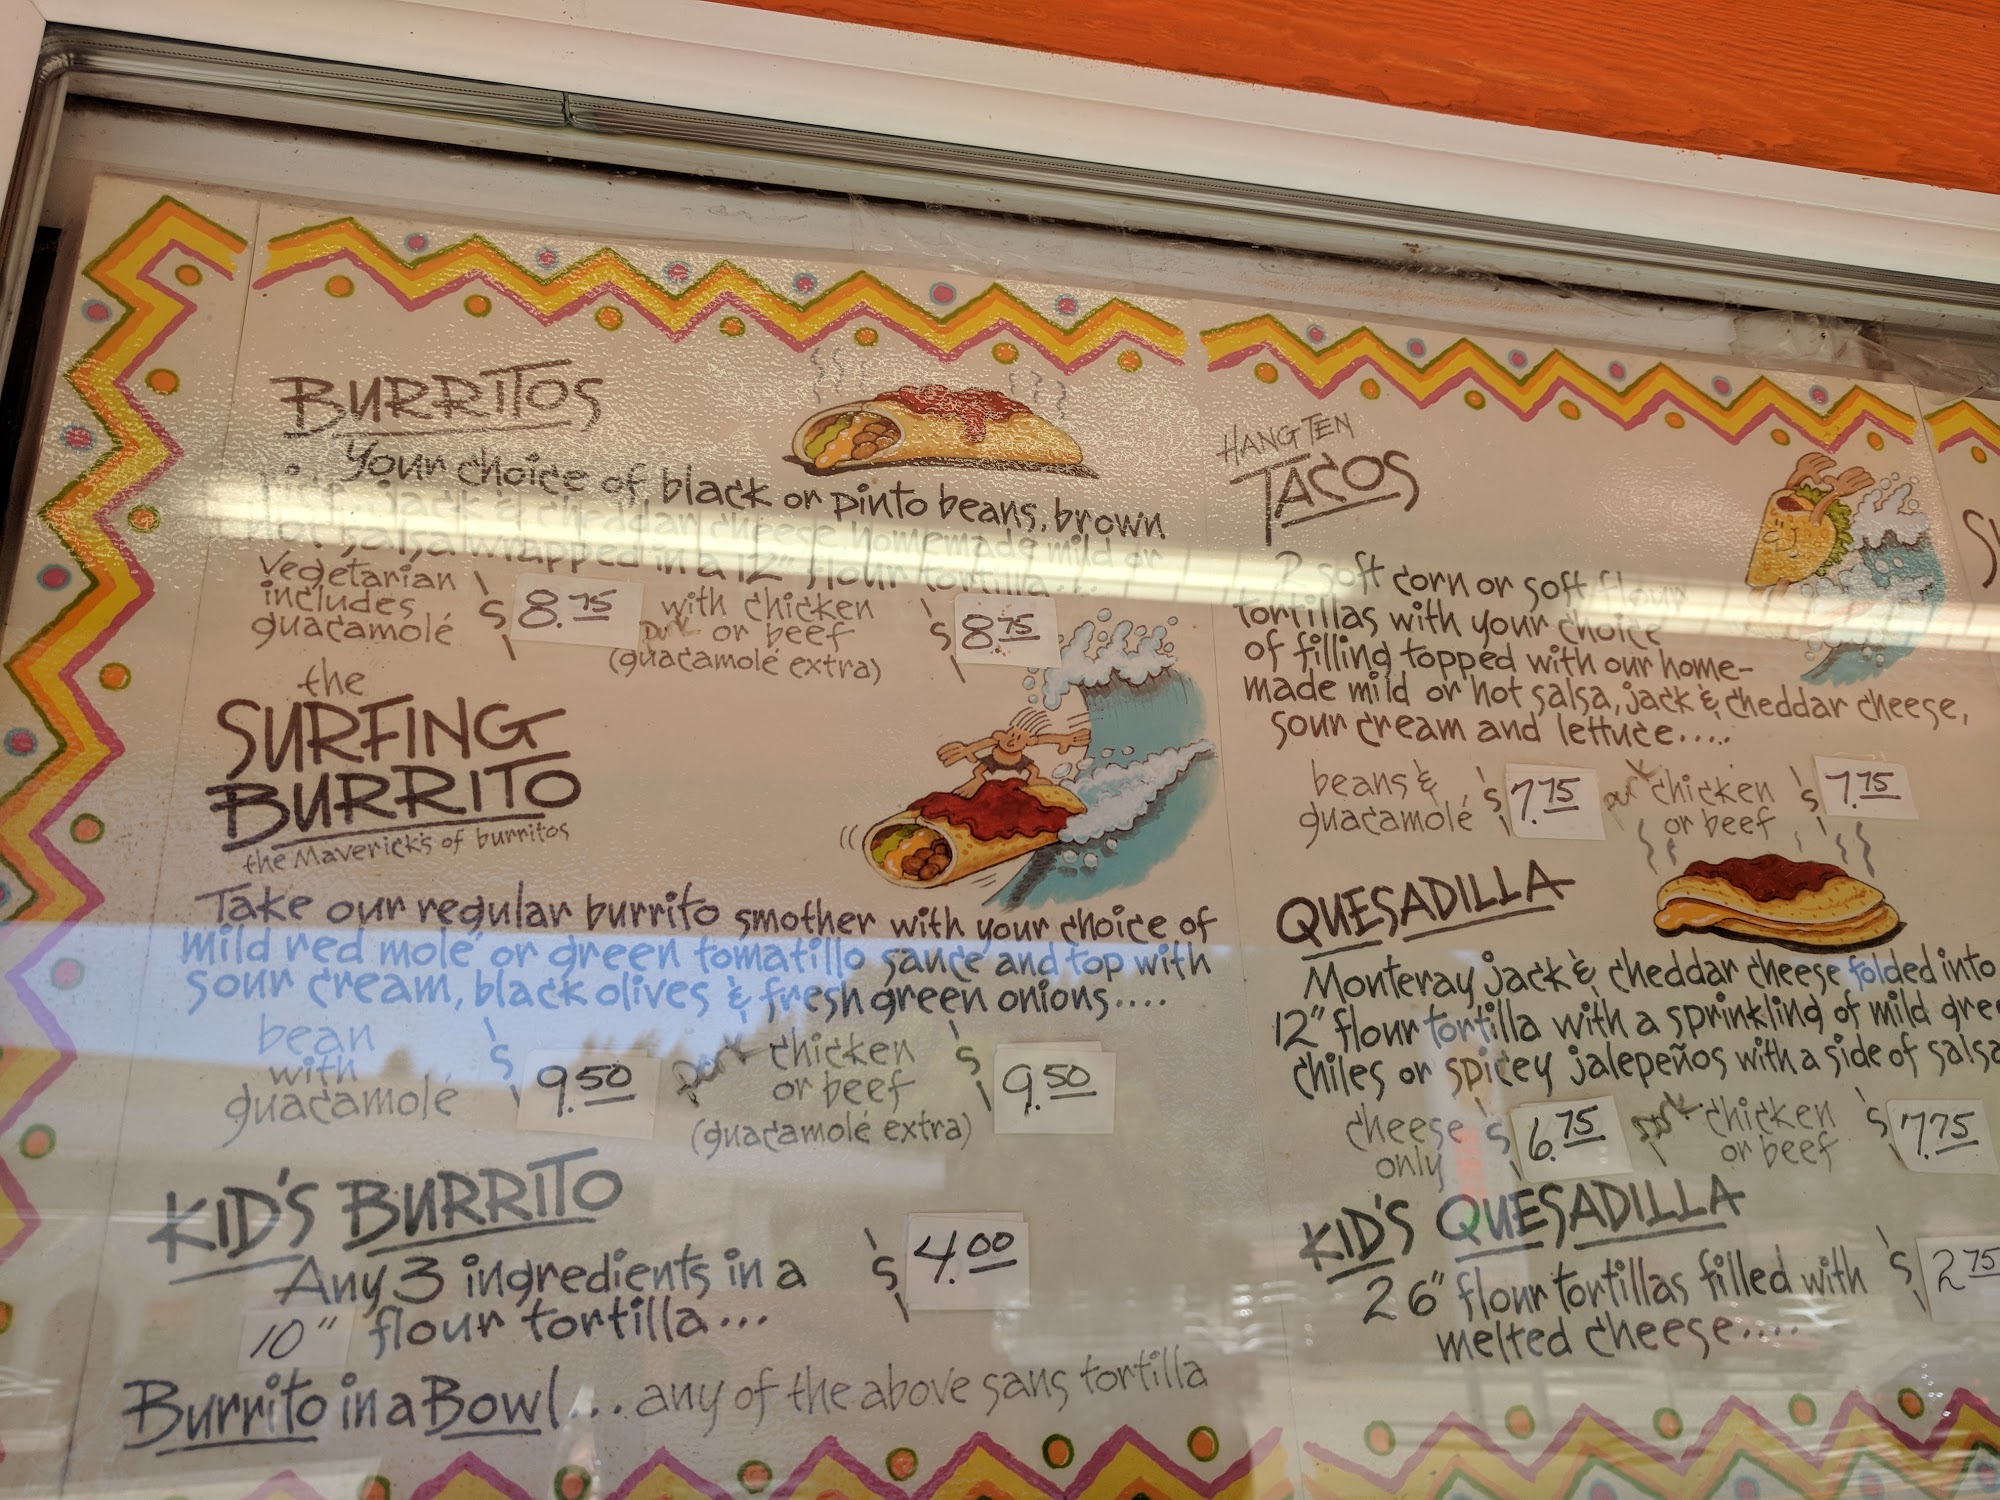 BURRITOS
Your choice of black or pinto beans, brown
rice, jack & cheddar cheese homemade mild or
hot salsa wrapped in a 12" flour tortilla....
vegetarian
includes
guacamolé
$ 8.75
pork
with chicken
or beef
(guacamolé extra)
$ 8.75
the
SURFING
BURRITO
the Maverick's of burritos
Take our regular burrito smother with your choice of
mild red molé or green tomatillo sauce and top with
sour cream, black olives & fresh green onions....
bean
with
guacamolé
$ 9.50
pork
chicken
or beef
(guacamolé extra)
$ 9.50
KID'S BURRITO
Any 3 ingredients in a
10" flour tortilla...
$ 4.00
Burrito in a Bowl... any of the above sans tortilla
HANG TEN
TACOS
2 soft corn or soft flour
tortillas with your choice
of filling topped with our home-
made mild or hot salsa, jack & cheddar cheese,
sour cream and lettuce.....
beans &
guacamolé
$ 7.75
pork
chicken
or beef
$ 7.75
QUESADILLA
Monteray jack & cheddar cheese folded into
12" flour tortilla with a sprinkling of mild gree
chiles or spicey jalepeños with a side of salsa
cheese
only
$ 6.75
pork
chicken
or beef
$ 7.75
KID'S QUESADILLA
2 6" flour tortillas filled with
melted cheese....
$ 2.75